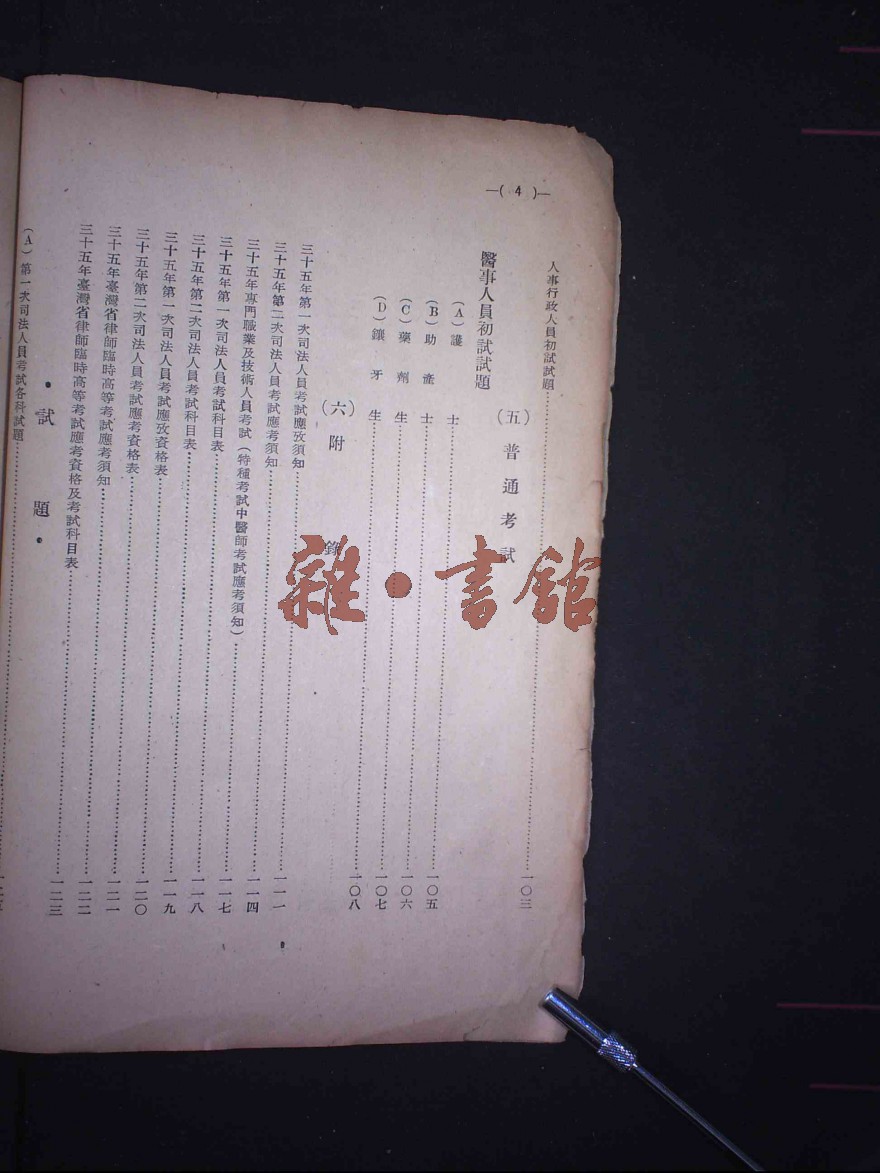 —( 4 )—
人事行政人員初試試題……一〇三
（五）普通考試
醫事人員初試試題
(A) 護士……一〇五
(B) 助產士……一〇六
(C) 藥劑生……一〇七
(D) 鑲牙生……一〇八
（六）附錄
三十五年第一次司法人員考試應攷須知……一一一
三十五年第二次司法人員考試應考須知……一一四
三十五年專門職業及技術人員考試（特種考試中醫師考試應考須知）……一一七
三十五年第一次司法人員考試科目表……一一八
三十五年第二次司法人員考試科目表……一一九
三十五年第一次司法人員考試應攷資格表……一二〇
三十五年第二次司法人員考試應考資格表……一二一
三十五年臺灣省律師臨時高等考試應考須知……一二二
三十五年臺灣省律師臨時高等考試應考資格及考試科目表……一二三
•試題•
(A) 第一次司法人員考試各科試題……
雜•書館